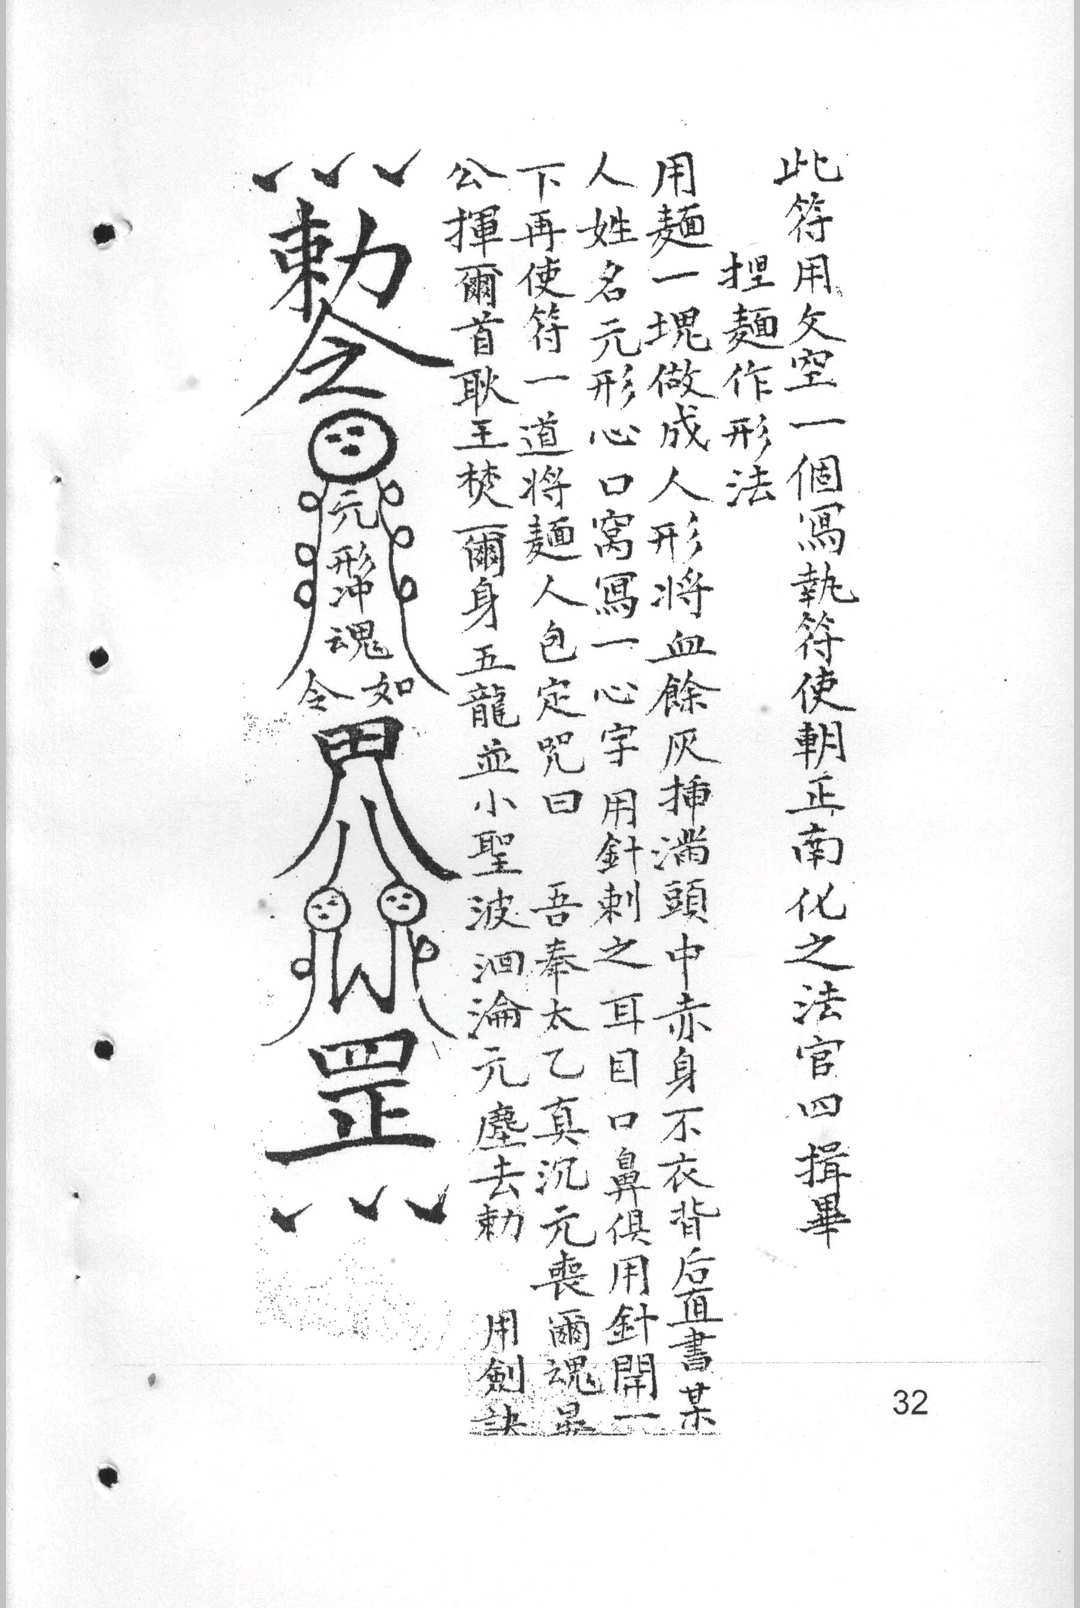 此符用文空一個寫執符使朝正南化之法官四揖畢
捏麵作形法
用麵一塊做成人形將血餘灰揷滿頭中赤身不衣背后直書某
人姓名元形心口窩寫一心字用針刺之耳目口鼻俱用針開一
下再使符一道將麵人包定咒曰 吾奉太乙真沉元喪爾魂
公揮爾首耿王焚爾身五龍並小聖波洄淪元塵去勅 用劍訣
勅令
元形沖魂
如令
罡
32